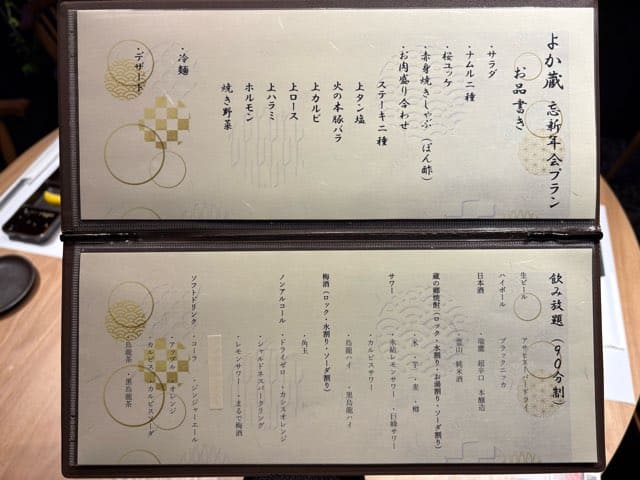 よか蔵　忘新年会プラン
お品書き
・サラダ
・ナムル二種
・桜ユッケ
・赤身焼きしゃぶ（ぽん酢）
・お肉盛り合わせ
ステーキ二種
上タン塩
火の本豚バラ
上カルビ
上ロース
上ハラミ
ホルモン
焼き野菜
・冷麺
・デザート
飲み放題（90分制）
生ビール　アサヒスーパードライ
ハイボール　ブラックニッカ
日本酒　・瑞鷹　超辛口　本醸造
・霊山　純米酒
蔵の郷焼酎（ロック・水割り・お湯割り・ソーダ割り）
・米　・芋　・麦　・樽
サワー　・氷結レモンサワー　・巨峰サワー
・カルピスサワー
・烏龍ハイ　・黒烏龍ハイ
梅酒（ロック・水割り・ソーダ割り）
・角玉
ノンアルコール　・ドライゼロ　・カシスオレンジ
・シャルドネスパークリング
・レモンサワー　・まるで梅酒
ソフトドリンク　・コーラ　・ジンジャーエール
・アップル　・オレンジ
・カルピス　・カルピスソーダ
・烏龍茶　・黒烏龍茶